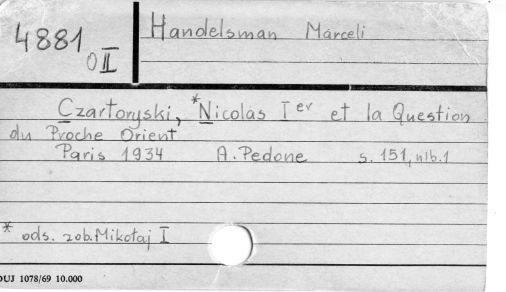 4881
O II
Handelsman Marceli
Czartoryski, *Nicolas Ier et la Question
du Proche Orient
Paris 1934 A. Pedone s. 151, nlb. 1
* ods. zob. Mikołaj I
DUJ 1078/69 10.000